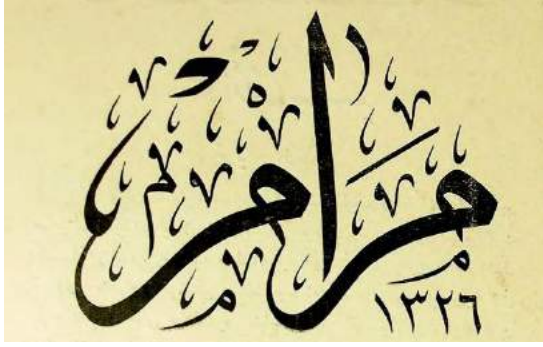 مرام
١٣٢٦